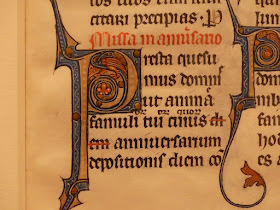 citari precipias. P
Missa in annisario
Presta quesu
mus domin
ut anima
famuli tui cuius di
em anniversarium
depositionis diem co